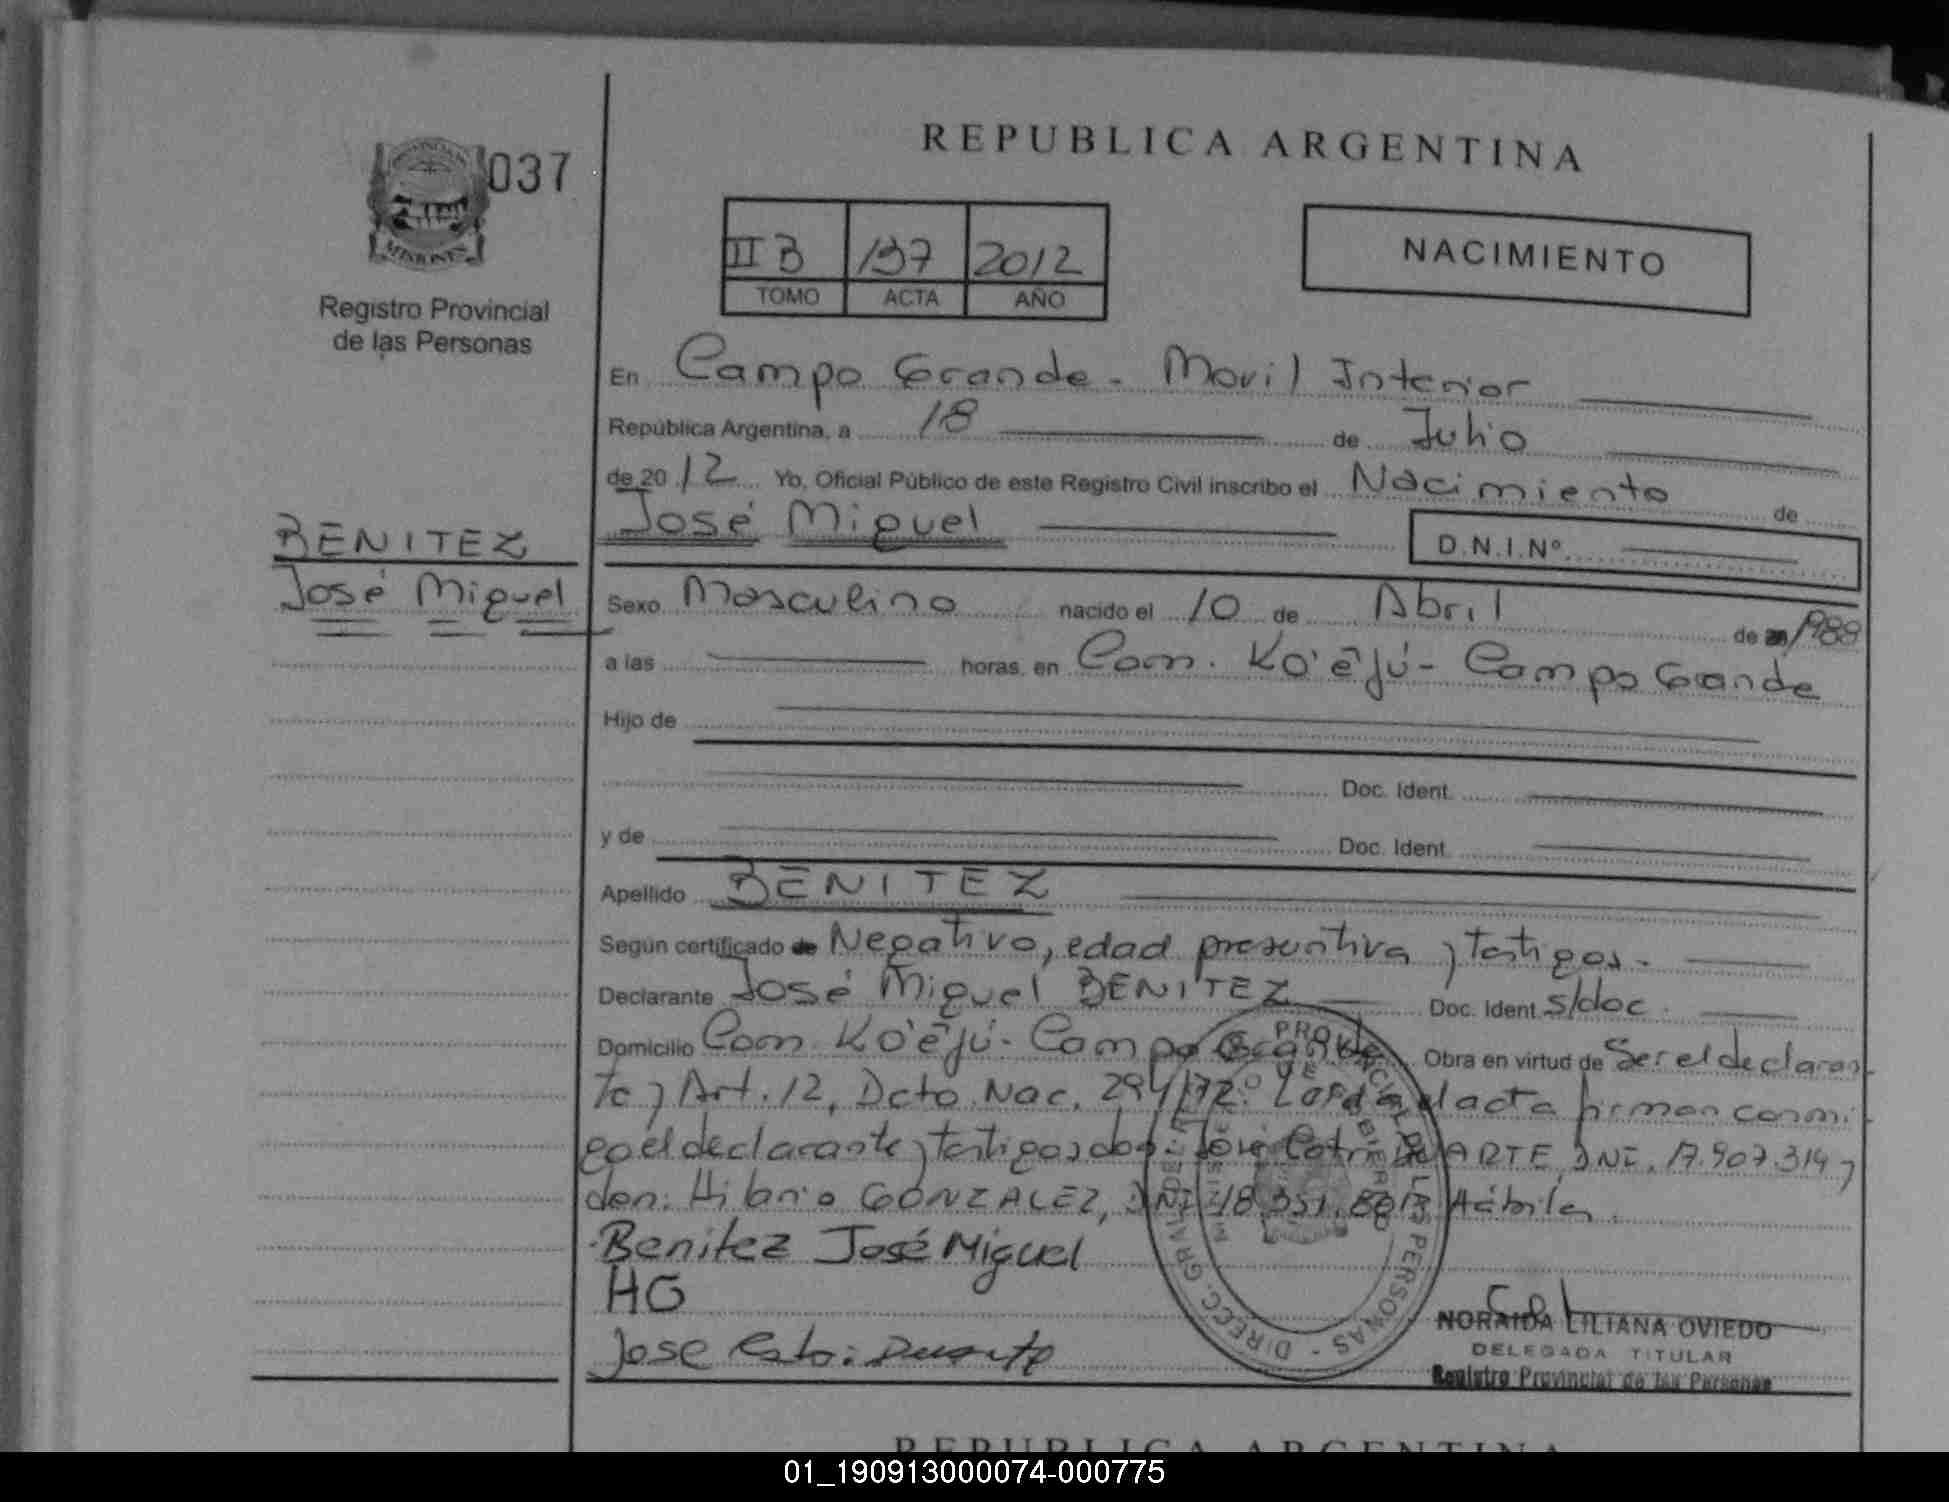 037
MISIONES
Registro Provincial
de las Personas
BENITEZ
José Miguel
REPUBLICA ARGENTINA
II B 137 2012
TOMO ACTA AÑO
NACIMIENTO
En Campo Grande - Movil Interior
República Argentina, a 18 de Julio
de 2012 Yo, Oficial Público de este Registro Civil inscribo el Nacimiento de
José Miguel D.N.I.Nº
Sexo Masculino nacido el 10 de Abril de 1988
a las horas, en Com. Ko'êjú - Campo Grande
Hijo de
Doc. Ident.
y de Doc. Ident.
Apellido BENITEZ
Según certificado de Negativo, edad presuntiva y testigos.
Declarante José Miguel BENITEZ Doc. Ident. s/doc.
Domicilio Com. Ko'êjú - Campo Grande Obra en virtud de Ser el declaran
te y Art. 12, Dcto. Nac. 294/72. Leída el acta firman conmi
go el declarante y testigos don: José DUARTE, DNI. 17.907.314 y
don: Hilario GONZALEZ, DNI 18.351. Hábiles.
Benitez José Miguel
HG
Jose Duarte
DIRECC. GRAL. PROVINCIAL DE LAS PERSONAS
NORAIDA LILIANA OVIEDO
DELEGADA TITULAR
Registro Provincial de las Personas
REPUBLICA ARGENTINA
01_190913000074-000775